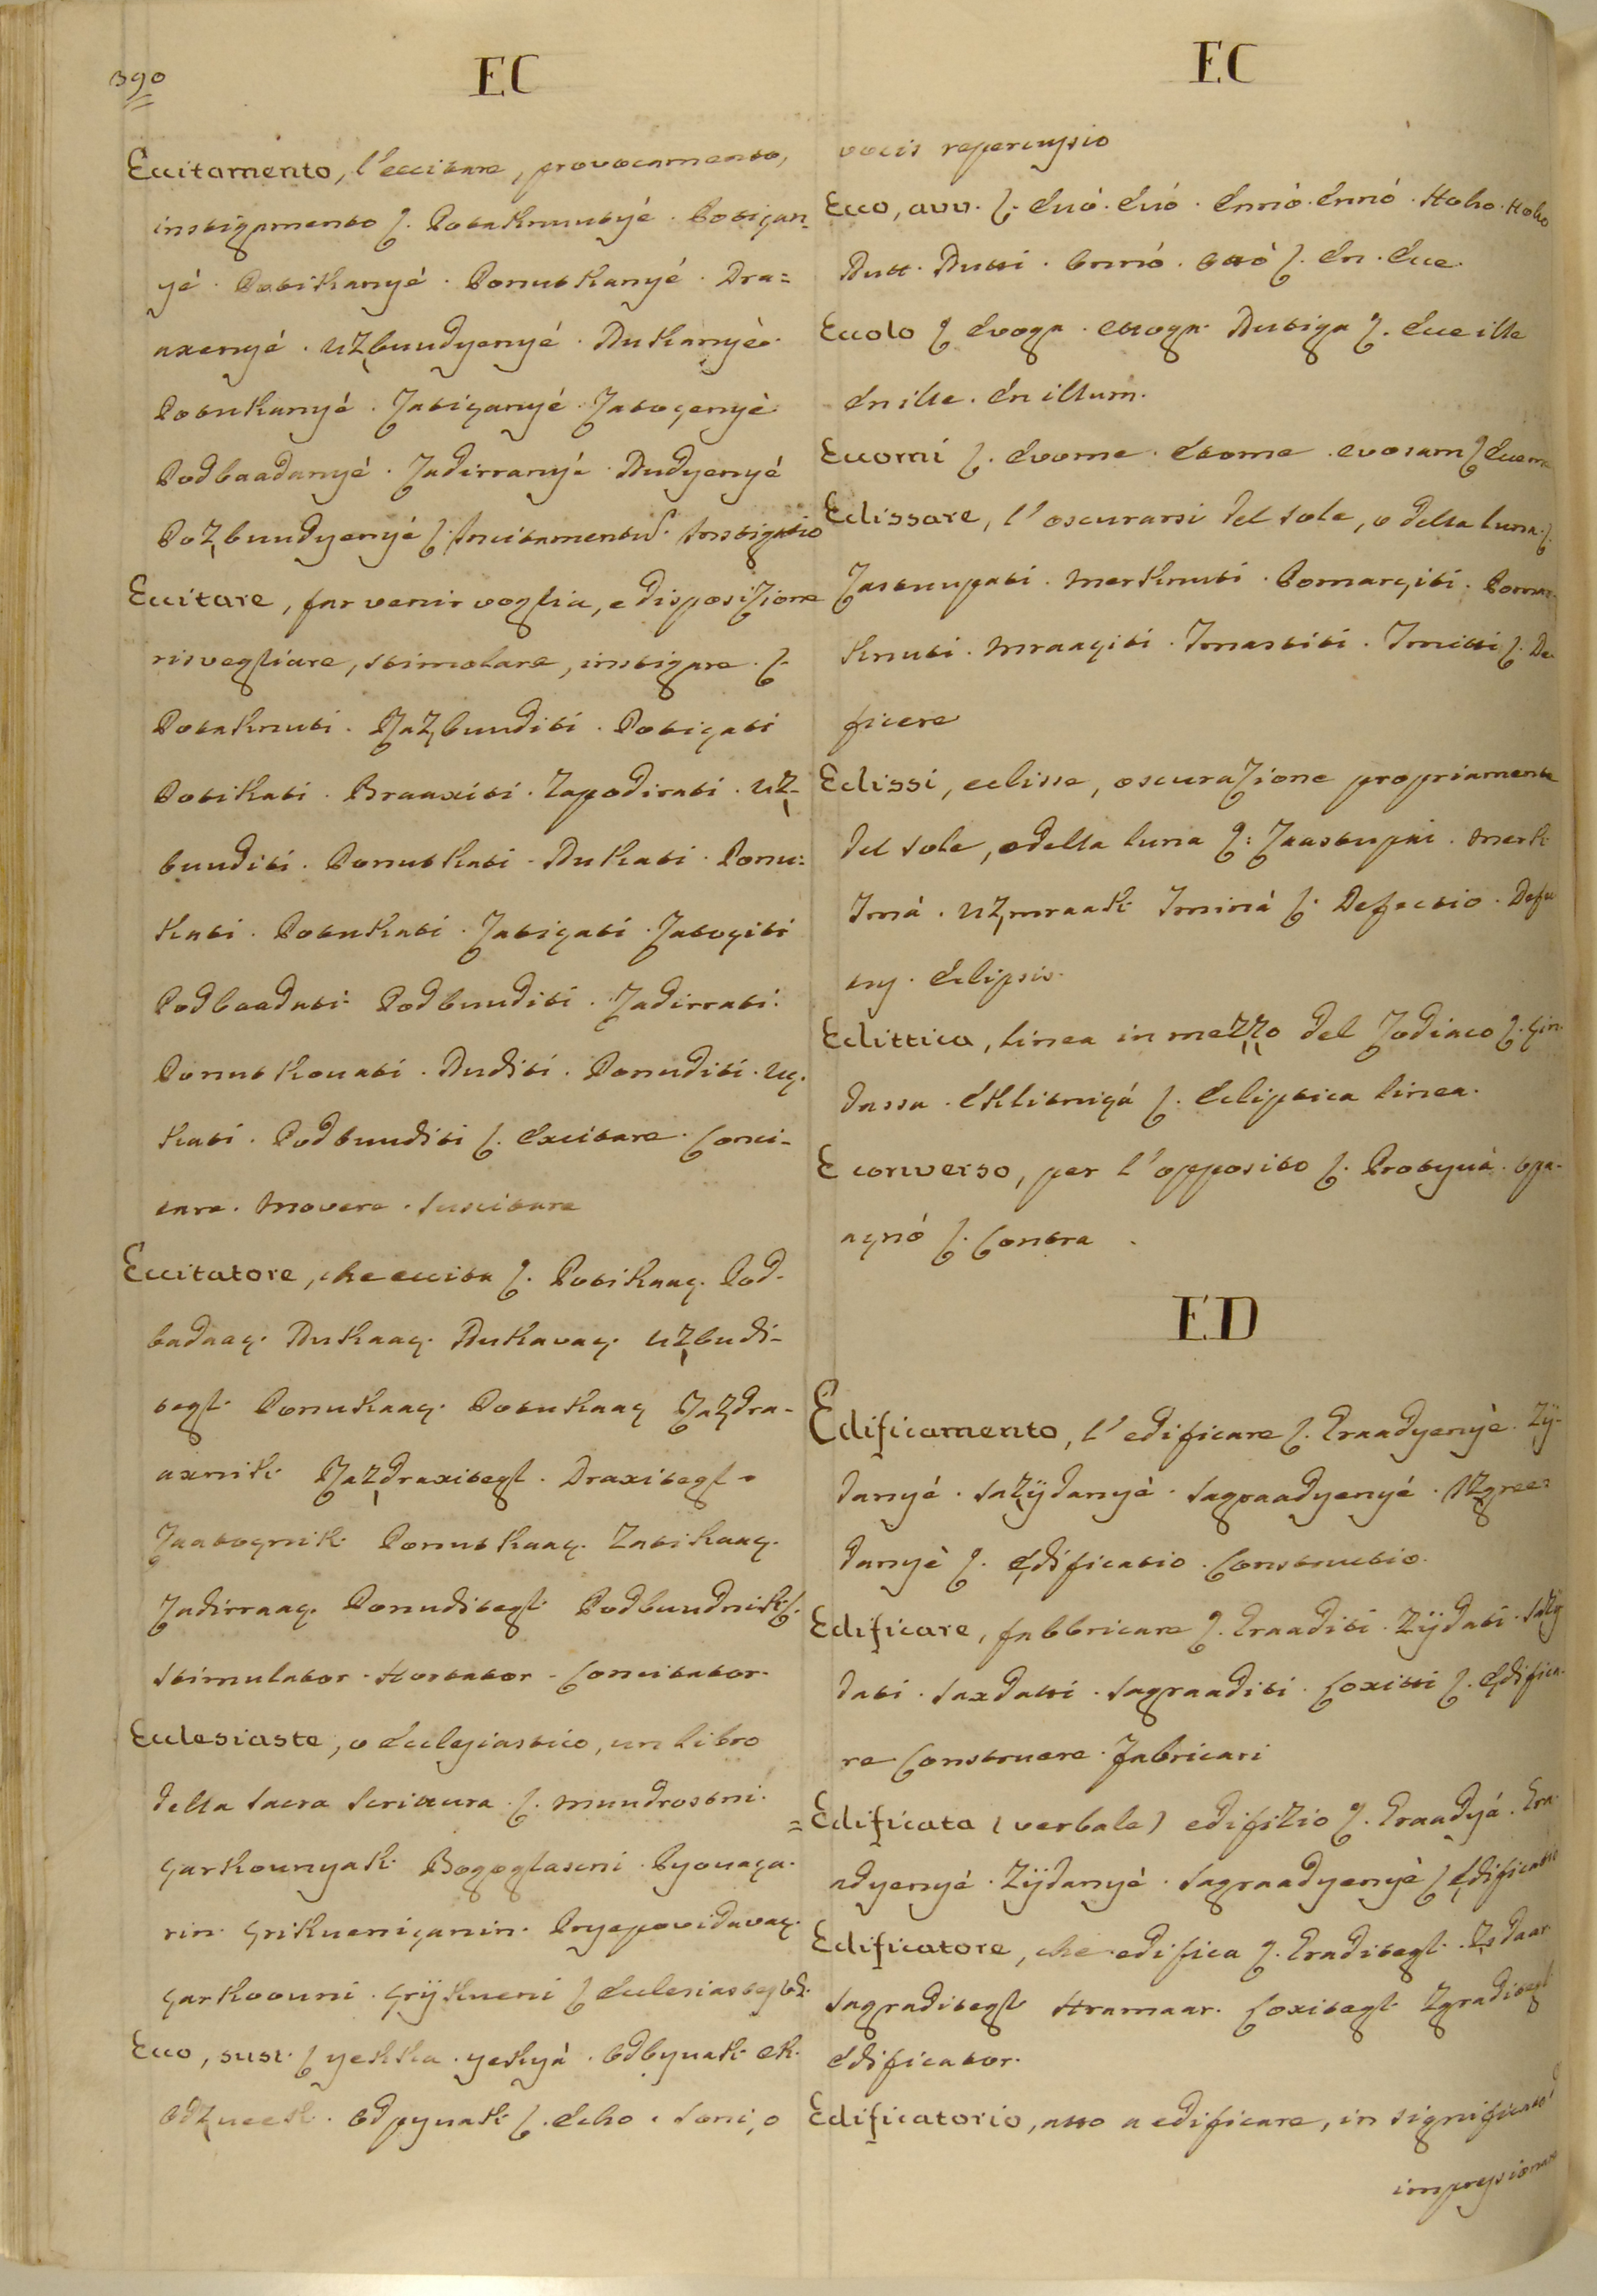 390
EC
Eccitamento, l'eccitare, provocamento,
instigamento ʃ. Potaknuutyé. Potiçan=
yé. Potikanyé. Ponutkanyé. Dra=
axenyé. uzbuudyenyé. Dukanyè.
Potukanyé. Zatiçanyé. Zatoçenyè.
Podbaadanyé. Zadirranyé. Dudyenyé
Pozbuudyenyé ʃ. Incitamentuſ. Instigatio
Eccitare, far venir voglia, e disposizione
risvegliare, stimolare, instigare. ʃ.
Potaknuti. Razbuuditi. Potiçati
Potikati. Draaxiti. Zapodirati. uz-
buuditi. Ponutkati. Dukati. Ponu=
kati. Potukati. Zatiçati. Zatoçiti
Podbaadati. Podbuuditi. Zadirrati.
Ponutkouati. Duditi. Ponuditi. uç.
kati. Podbuuditi ʃ. Excitare. Conci-
tare. Movere. Suscitare
Eccitatore, che eccita ʃ. Potikaaç. Pod-
badaaç. Dukaaç. Dukavaç. uzbudi-
tegl. Ponukaaç. Potukaaç Razdra-
axnik. Razdraxitegl. Draxitegl.
Zaatoçnik. Ponutkaaç. Zatikaaç.
Zadirraaç. Ponuditegl. Podbuudnik ʃ.
Stimulator. Hortator. Concitator.
Ecclesiaste, o Ecclesiastico, un libro
della Sacra Scrittura. ʃ. Muudrostni.
çarkounyak. Bogoglasni. Pyouaça-
rin. Çrikueniçanin. Pryepovidavaç.
Çarkoouni. Çrijkueni ʃ Ecclesiastes
Ecco, sust. ʃ yekka. yekyà. Odbyuak. ek.
Odzueek. Odpyuak ʃ. Echo. Soni, o
EC
vocis repercussio
Ecco, avv. ʃ. Evò. Evó. Ennò. Ennó. Hoho. Hoho
Dutt. Dutti. Onnó. Ottò ʃ. En. Ecce.
Eccolo ʃ Evoga. Ettoga. Dutiga ʃ. Ecce ille
En ille. En illum.
Eccomi ʃ. Evome. Etome. evosam ʃ Ecce me
Eclissare, l'oscurarsi del Sole, o della luna. ʃ.
Zastuupati. Merknuti. Pomarçiti. Pomar-
knuti. Mraaçiti. Tmastiti. Tmitti ʃ. De-
ficere
Eclissi, eclisse, oscurazione propriamente
del Sole, o della luna ʃ: Zaastupai. Merk
Tmá. uzmraak Tminá ʃ. Defectio. Defec
tus. Eclipsis.
Eclittica, linea in mezzo del Zodiaco ʃ. Çin-
dassa. Eklitniçá ʃ. Ecliptica linea.
E converso, per l'opposito ʃ. Protyuà. opa-
açnó ʃ. Contra.
ED
Edificamento, l'edificare ʃ. Graadyenyè. Zÿ-
danyé. Sazÿdanyè. Sagraadyenyé. Uzgree=
danyè ʃ. Edificatio. Constructio.
Edificare, fabbricare ʃ. Graaditi. Zÿdati. Sazÿ
dati. Saxdatti. Sagraaditi. Coxitti ʃ. Edifica-
re Construere. Fabricari
= Edificata (verbale) edifizio ʃ. Graadyá. Gra-
adyenyé. Zÿdanyè. Sagraadyenyè ʃ Edificatio
Edificatore, che edifica ʃ. Graditegl. Zidaar
Sagraditegl Hramaar. Coxitegl Zgraditegl
Edificator.
Edificatorio, atto a edificare, in significato d
impressione